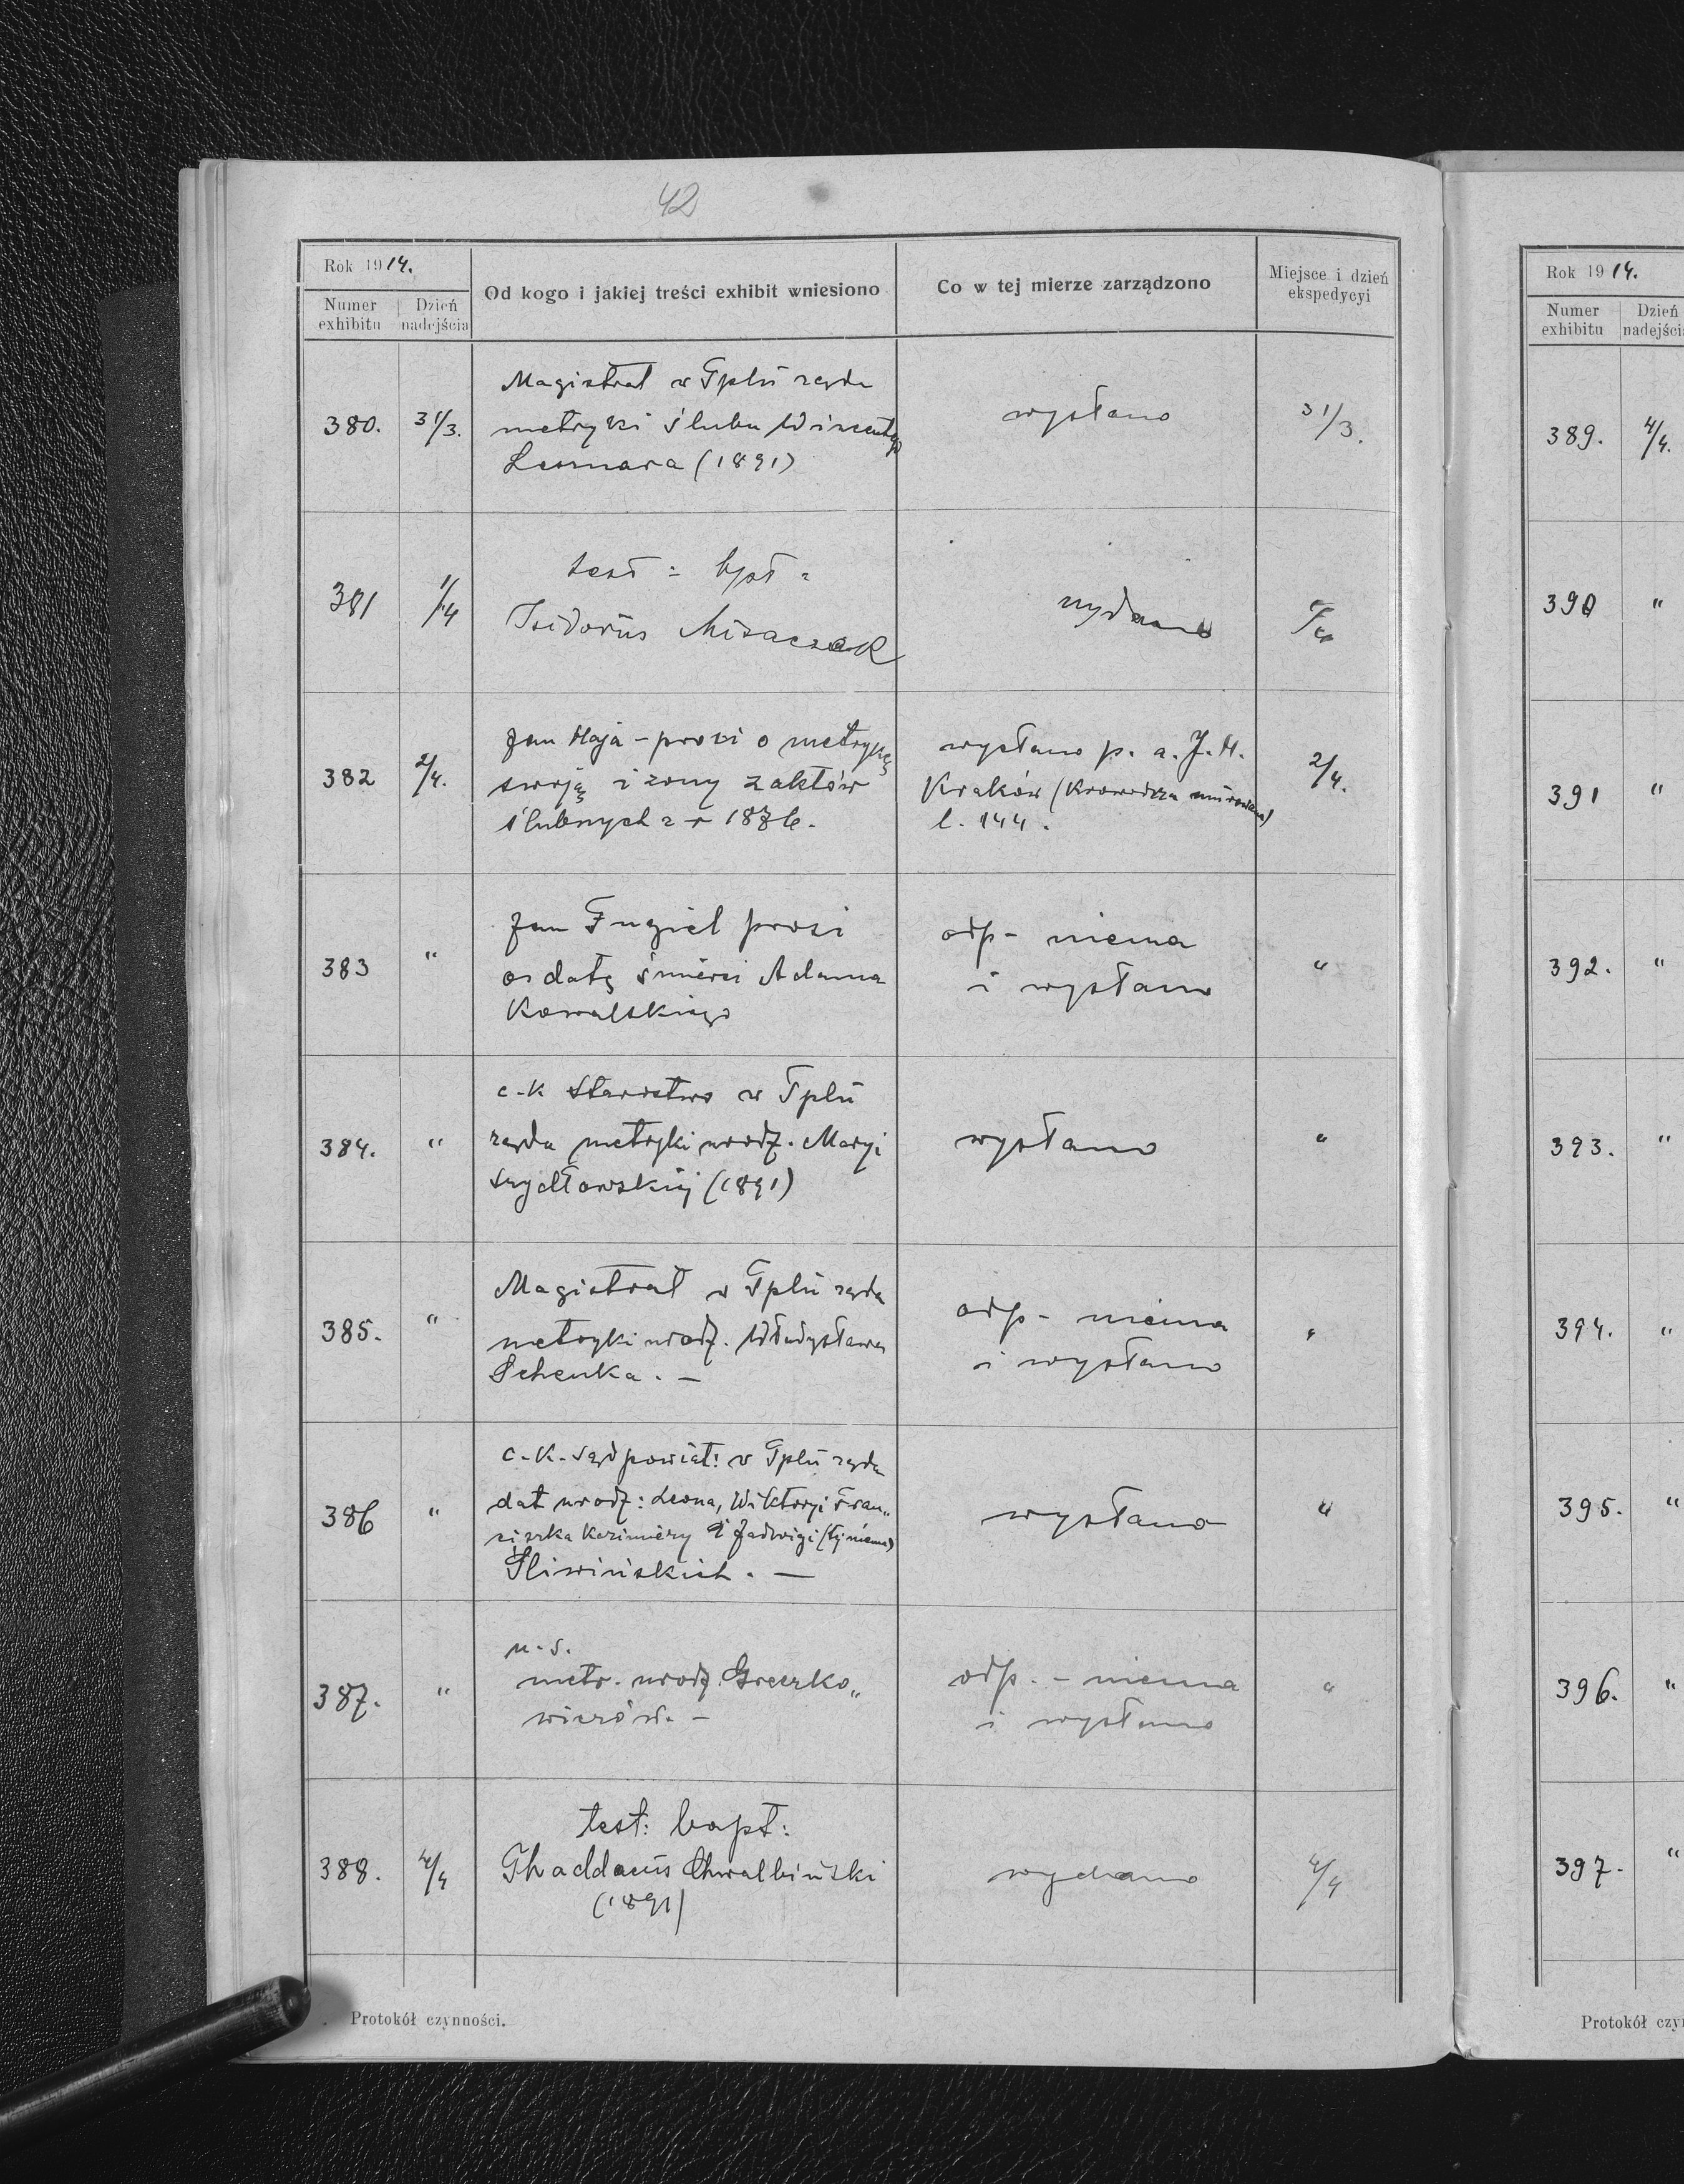 42
Rok 1914.
Numer exhibitu
Dzień nadejścia
Od kogo i jakiej treści exhibit wniesiono
Co w tej mierze zarządzono
Miejsce i dzień ekspedycyi
380. 31/3. Magistrat w Tplu żąda wysłano 31/3.
metryki ślubu Wincentego
(1891)
381 1/4 test: bpt: wydano
Isidorus
382 2/4. Jan Haja - prosi o metrykę wysłano p. a. J. H. 2/4.
swoją i żony z aktów Kraków (Krowodrza murowana)
ślubnych z r 1876. l. 144.
383 " Jan Fugiel prosi odp - niema "
o datę śmierci Adama i wysłano
Kowalskiego
384. " c. k Starostwo w Tplu wysłano "
żąda metryki urodz. Maryi
Szydłowskiej (1891)
385. " Magistrat w Tplu żąda odp - niema "
metryki urodz. Władysława i wysłano
Schenka. -
386 " c. k. Sąd powiat: w Tplu żąda wysłano "
dat urodz: Leona, Wiktoryi Fran„
ciszka Kazimiery i Jadwigi (tej niema)
Śliwińskich. -
387. " u. s. odp. - niema "
metr. urodz. Greczko„ i wysłano
wiczów. -
388. 4/4 test: bapt: wydano 4/4
Thaddaeus Chwalbiński
(1891)
Protokół czynności.
Rok 1914.
Numer exhibitu
Dzień
389. 4/4.
390 "
391 "
392. "
393. "
394. "
395. "
396. "
397. "